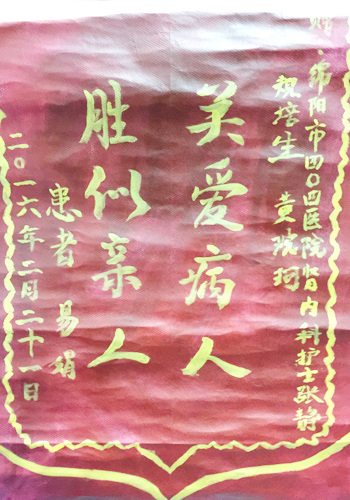 赠:绵阳市四〇四医院肾内科护士张静
规培生 黄院珂
关爱病人
胜似亲人
患者 易
二〇一六年二月二十一日